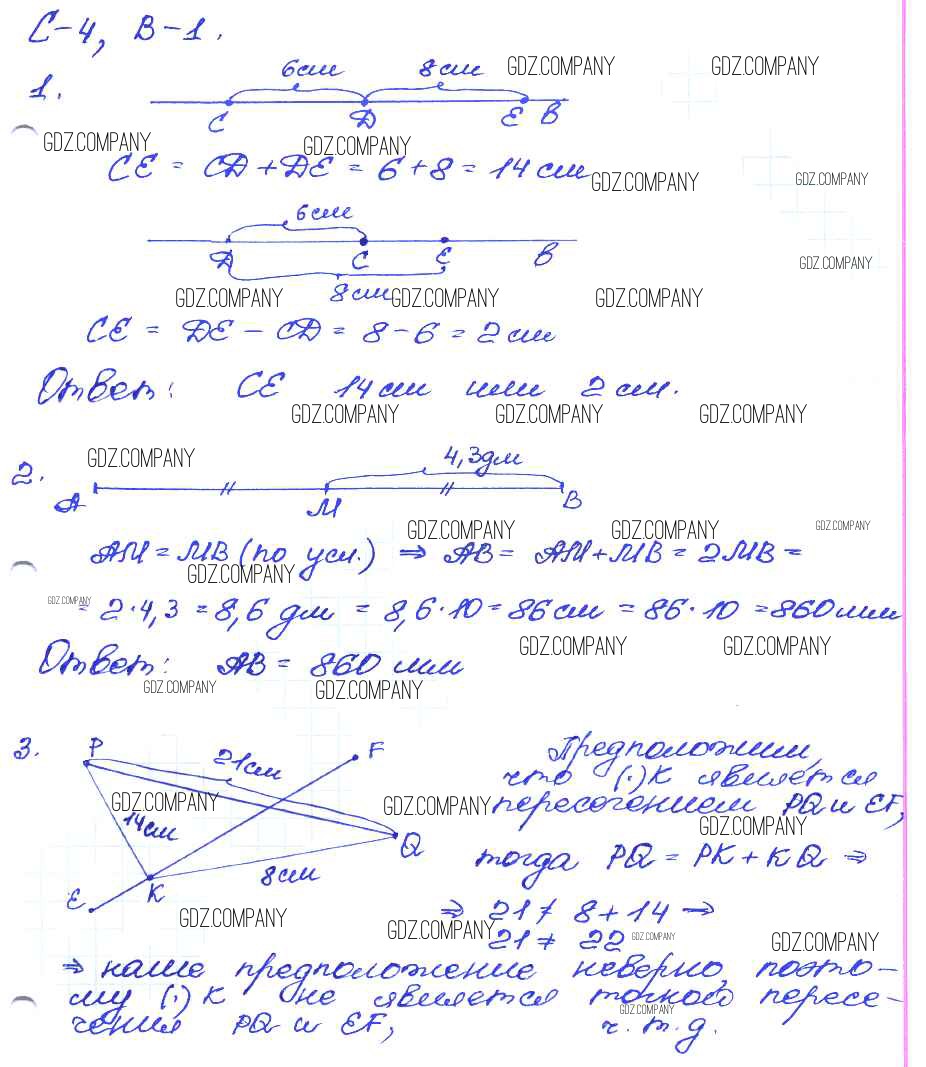 С-4, В-1.
6см 8см GDZ.COMPANY GDZ.COMPANY
1.
C D E B
GDZ.COMPANY GDZ.COMPANY
CE = CD + DE = 6 + 8 = 14 см GDZ.COMPANY GDZ.COMPANY
6см
D C E B GDZ.COMPANY
GDZ.COMPANY 8см GDZ.COMPANY GDZ.COMPANY
CE = DE - CD = 8 - 6 = 2 см
Ответ: CE 14 см или 2 см.
GDZ.COMPANY GDZ.COMPANY GDZ.COMPANY
GDZ.COMPANY 4,3дм
2.
A M B
GDZ.COMPANY GDZ.COMPANY GDZ.COMPANY
AM = MB (по усл.) ⇒ AB = AM + MB = 2MB =
GDZ.COMPANY
GDZ.COMPANY
= 2·4,3 = 8,6 дм = 8,6·10 = 86 см = 86·10 = 860 мм
GDZ.COMPANY GDZ.COMPANY
Ответ: AB = 860 мм
GDZ.COMPANY GDZ.COMPANY
3. P 21см F Предположим,
что (·) K является
GDZ.COMPANY GDZ.COMPANY пересечением PQ и EF,
14см GDZ.COMPANY
Q тогда PQ = PK + KQ ⇒
8см
E K ⇒ 21 ≠ 8 + 14 →
GDZ.COMPANY GDZ.COMPANY 21 ≠ 22 GDZ.COMPANY GDZ.COMPANY
⇒ наше предположение неверно, поэто-
му (·) K не является точкой пересе-
GDZ.COMPANY
чения PQ и EF, ч.т.д.